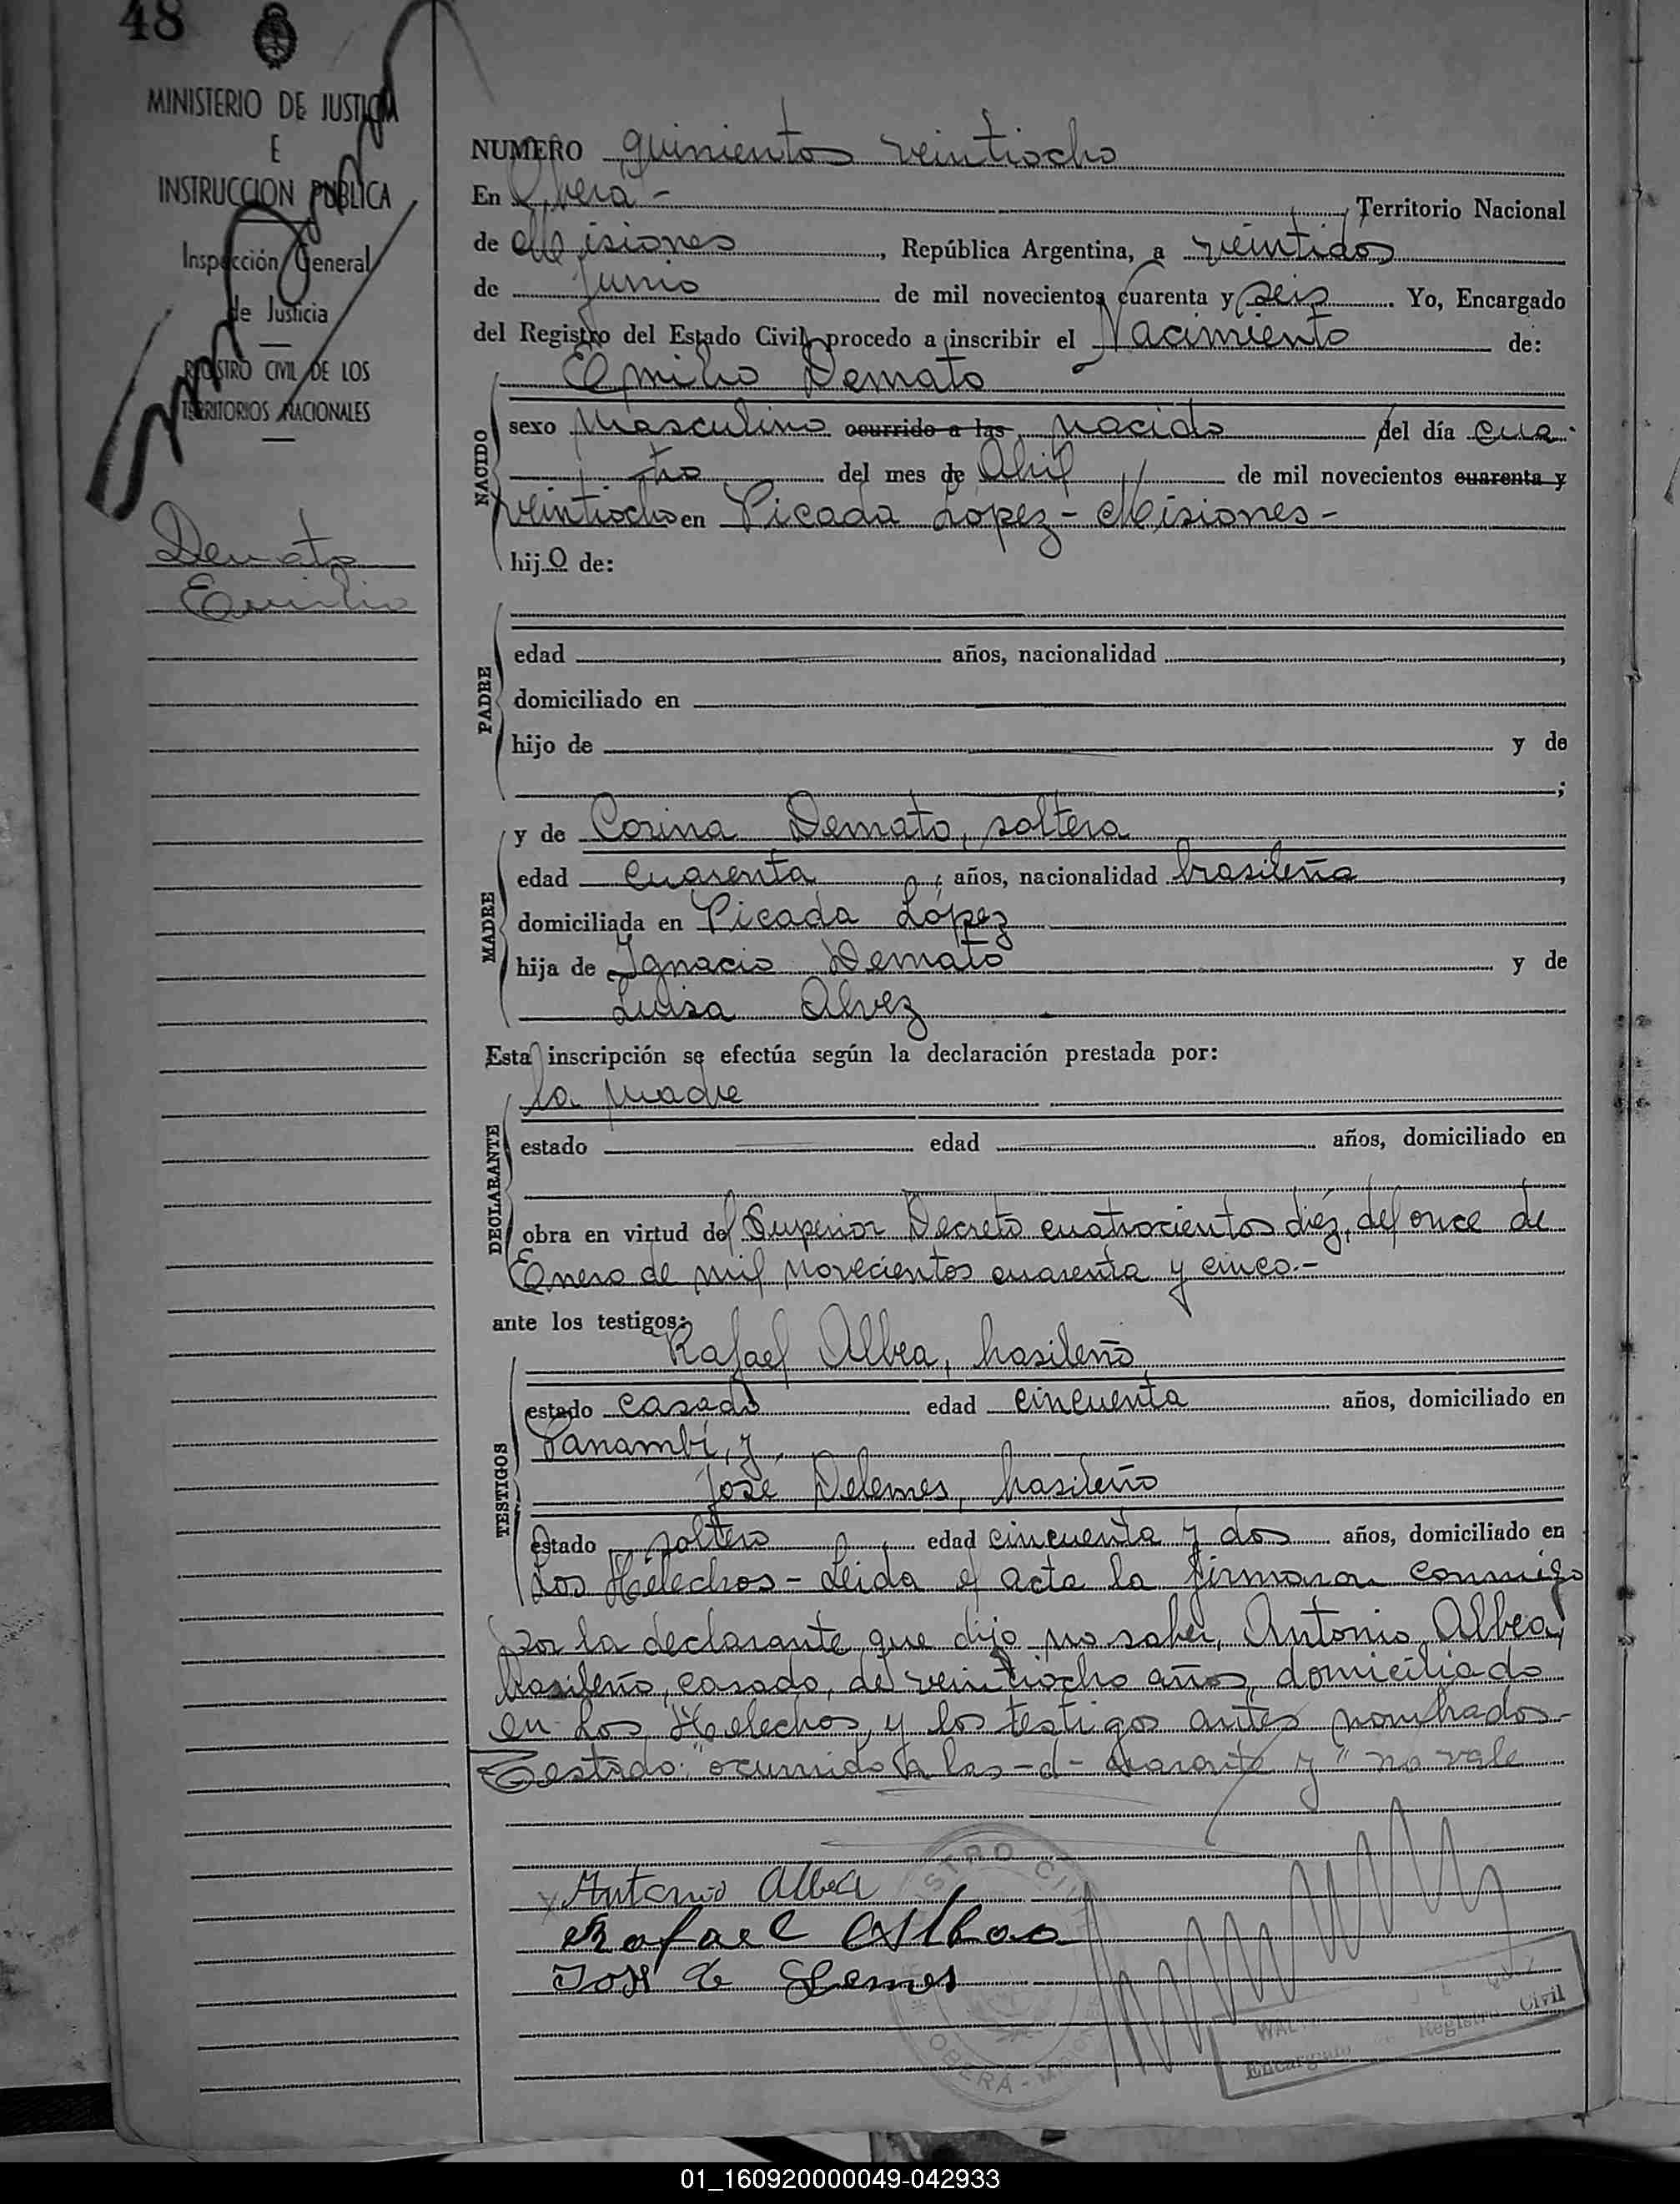 48
MINISTERIO DE JUSTICIA
E
INSTRUCCION PUBLICA
Inspección General
de Justicia
REGISTRO CIVIL DE LOS
TERRITORIOS NACIONALES
Demato
Emilio
NUMERO quinientos veintiocho
En Oberá - Territorio Nacional
de Misiones, República Argentina, a veintidos
de junio de mil novecientos cuarenta y seis. Yo, Encargado
del Registro del Estado Civil, procedo a inscribir el Nacimiento de:
NACIDO
Emilio Demato
sexo Masculino ocurrido a las nacido del día cua-
tro del mes de Abril de mil novecientos cuarenta y
veintiocho en Picada Lopez - Misiones -
hijo de:
PADRE
edad años, nacionalidad ,
domiciliado en
hijo de y de
;
MADRE
y de Corina Demato, soltera
edad cuarenta años, nacionalidad brasileña,
domiciliada en Picada López
hija de Ignacio Demato y de
Luisa Alvez
Esta inscripción se efectúa según la declaración prestada por:
DECLARANTE
la madre
estado edad años, domiciliado en
obra en virtud del Superior Decreto cuatrocientos diéz, del once de
Enero de mil novecientos cuarenta y cinco.-
ante los testigos:
TESTIGOS
Rafael Albea, brasileño
estado casado edad cincuenta años, domiciliado en
Panambí, y
José Delemes, brasileño
estado soltero edad cincuenta y dos años, domiciliado en
Los Helechos - Leida el acta la firmaron conmigo
por la declarante que dijo no saber, Antonio Albea,
brasileño, casado, de veintiocho años, domiciliado
en Los Helechos, y los testigos antes nombrados.-
Testado: "ocurrido a las -d- cuarenta y" no vale
Antonio Albea
Rafael Albea
José de Lemes
REGISTRO CIVIL
OBERÁ - MISIONES
Encargado de Registro Civil
01_160920000049-042933